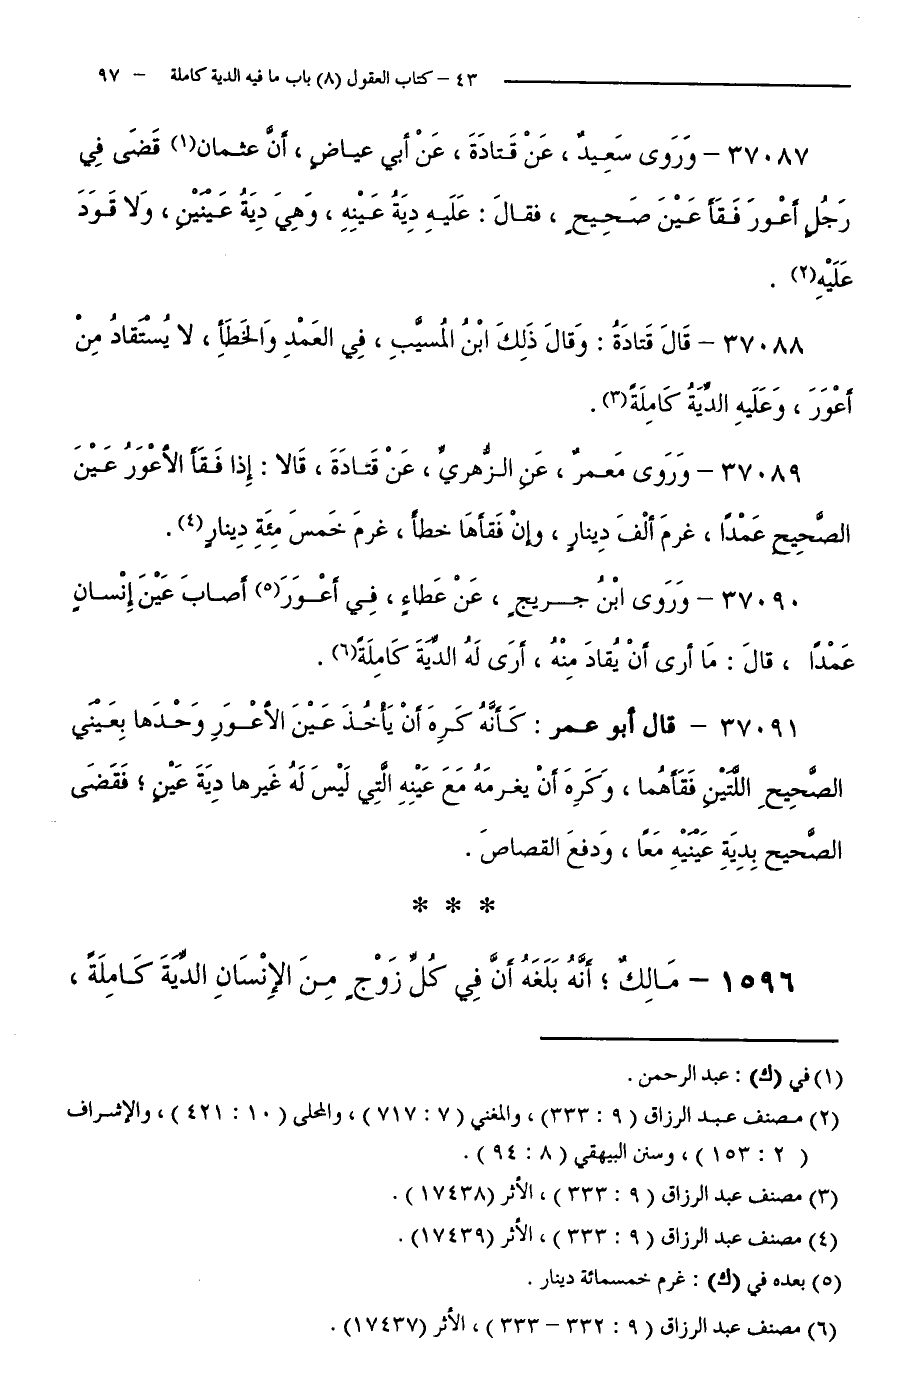 ٤٣ – كتاب العقول (٨) باب ما فيه الدية كاملة – ٩٧
٣٧٠٨٧ – وَرَوى سَعِيدٌ ، عَنْ قَتادَةَ ، عَنْ أبي عياضٍ ، أنَّ عثمان(١) قَضَى فِي
رَجُلٍ أعْورَ فَقَأَ عَيْنَ صَحِيحٍ ، فقالَ : عَلَيهِ دِيةُ عَينِهِ ، وَهيَ دِيَةُ عَيْنَيْنِ ، ولَا قَوَدَ
عَلَيْهِ(٢) .
٣٧٠٨٨ – قَالَ قَتادَةُ : وَقالَ ذَلِكَ ابْنُ المُسيَّبِ ، فِي العَمْدِ وَالخَطَأَ ، لا يُسْتَقادُ مِنْ
أعْوَرَ ، وَعَلَيهِ الدِّيَةُ كَامِلَةً(٣) .
٣٧٠٨٩ – وَرَوى مَعمرٌ ، عَنِ الزُّهريِّ ، عَنْ قَتادَةَ ، قَالا : إذا فَقأَ الأعْوَرُ عَيْنَ
الصَّحيحِ عَمْدًا ، غرمَ ألْفَ دِينارٍ ، وإنْ فَقَأهَا خطأً ، غرمَ خَمسَ مِئَةِ دِينارٍ(٤) .
٣٧٠٩٠ – وَرَوى ابْنُ جريجٍ ، عَنْ عَطاءٍ ، فِي أعْوَرَ(٥) أصابَ عَيْنَ إنْسانٍ
عَمْدًا ، قالَ : مَا أرى أنْ يُقادَ مِنْهُ ، أرَى لَهُ الدِّيَةَ كَامِلَةً(٦) .
٣٧٠٩١ – قال أبو عمر : كَأنَّهُ كَرِهَ أنْ يَأْخُذَ عَيْنَ الأعْوَرِ وَحْدَها بِعَيْنَي
الصَّحيحِ اللَّتَيْنِ فَقَأهُما ، وَكَرِهَ أنْ يغرمَهُ مَعَ عَيْنِهِ الَّتِي لَيْسَ لَهُ غَيرها دِيَةَ عَيْنٍ ؛ فَقَضَى
الصَّحيحِ بِدِيَةِ عَيْنَيْهِ مَعًا ، وَدفعَ القصاصَ .
* * *
١٥٩٦ – مَالِكٌ ؛ أنَّهُ بَلَغَهُ أنَّ فِي كُلِّ زَوْجٍ مِنَ الإنْسَانِ الدِّيَةَ كَامِلَةً ،
(١) في (ك) : عبد الرحمن .
(٢) مصنف عبد الرزاق ( ٩ : ٣٣٣) ، والمغني ( ٧ : ٧١٧ ) ، والمحلى ( ١٠ : ٤٢١ ) ، والإشراف
( ٢ : ١٥٣ ) ، وسنن البيهقي ( ٨ : ٩٤ ) .
(٣) مصنف عبد الرزاق ( ٩ : ٣٣٣ ) ، الأثر (١٧٤٣٨ ) .
(٤) مصنف عبد الرزاق ( ٩ : ٣٣٣ ) ، الأثر (١٧٤٣٩) .
(٥) بعده في (ك) : غرم خمسمائة دينار .
(٦) مصنف عبد الرزاق ( ٩ : ٣٣٢ – ٣٣٣ ) ، الأثر (١٧٤٣٧) .